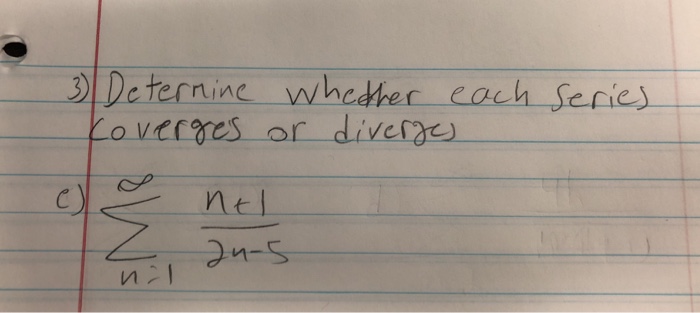 3) Determine whether each series
coverges or diverges
c) ∞
∑ n+1
2n-5
n=1